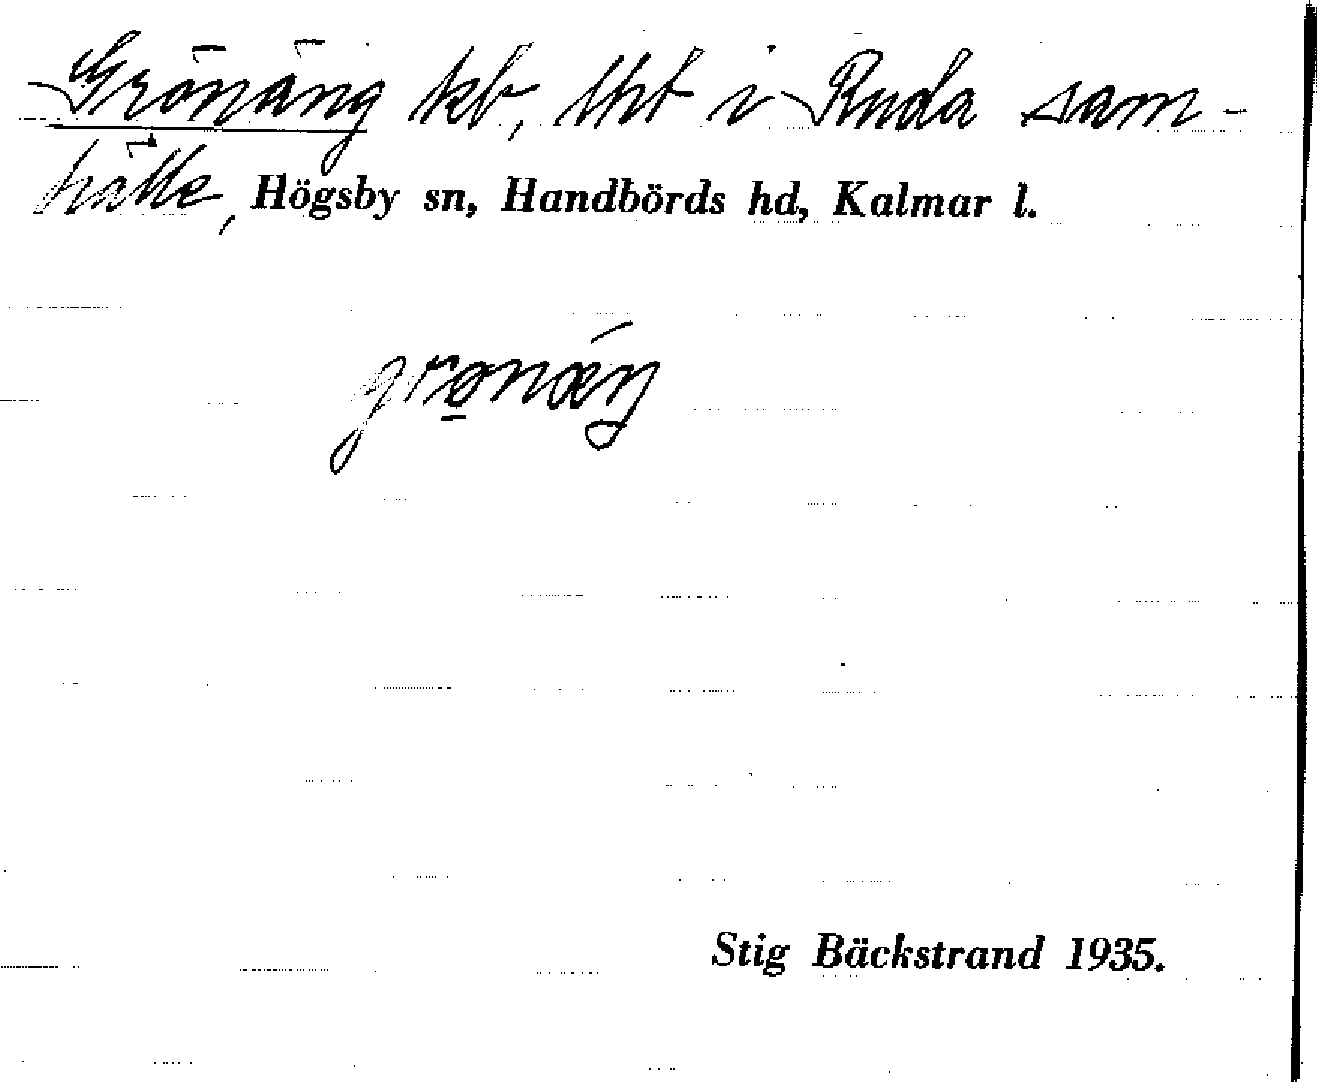 Grönäng kb, tht i Ruda sam-
hälle, Högsby sn, Handbörds hd, Kalmar l.
grönæŋ
Stig Bäckstrand 1935.